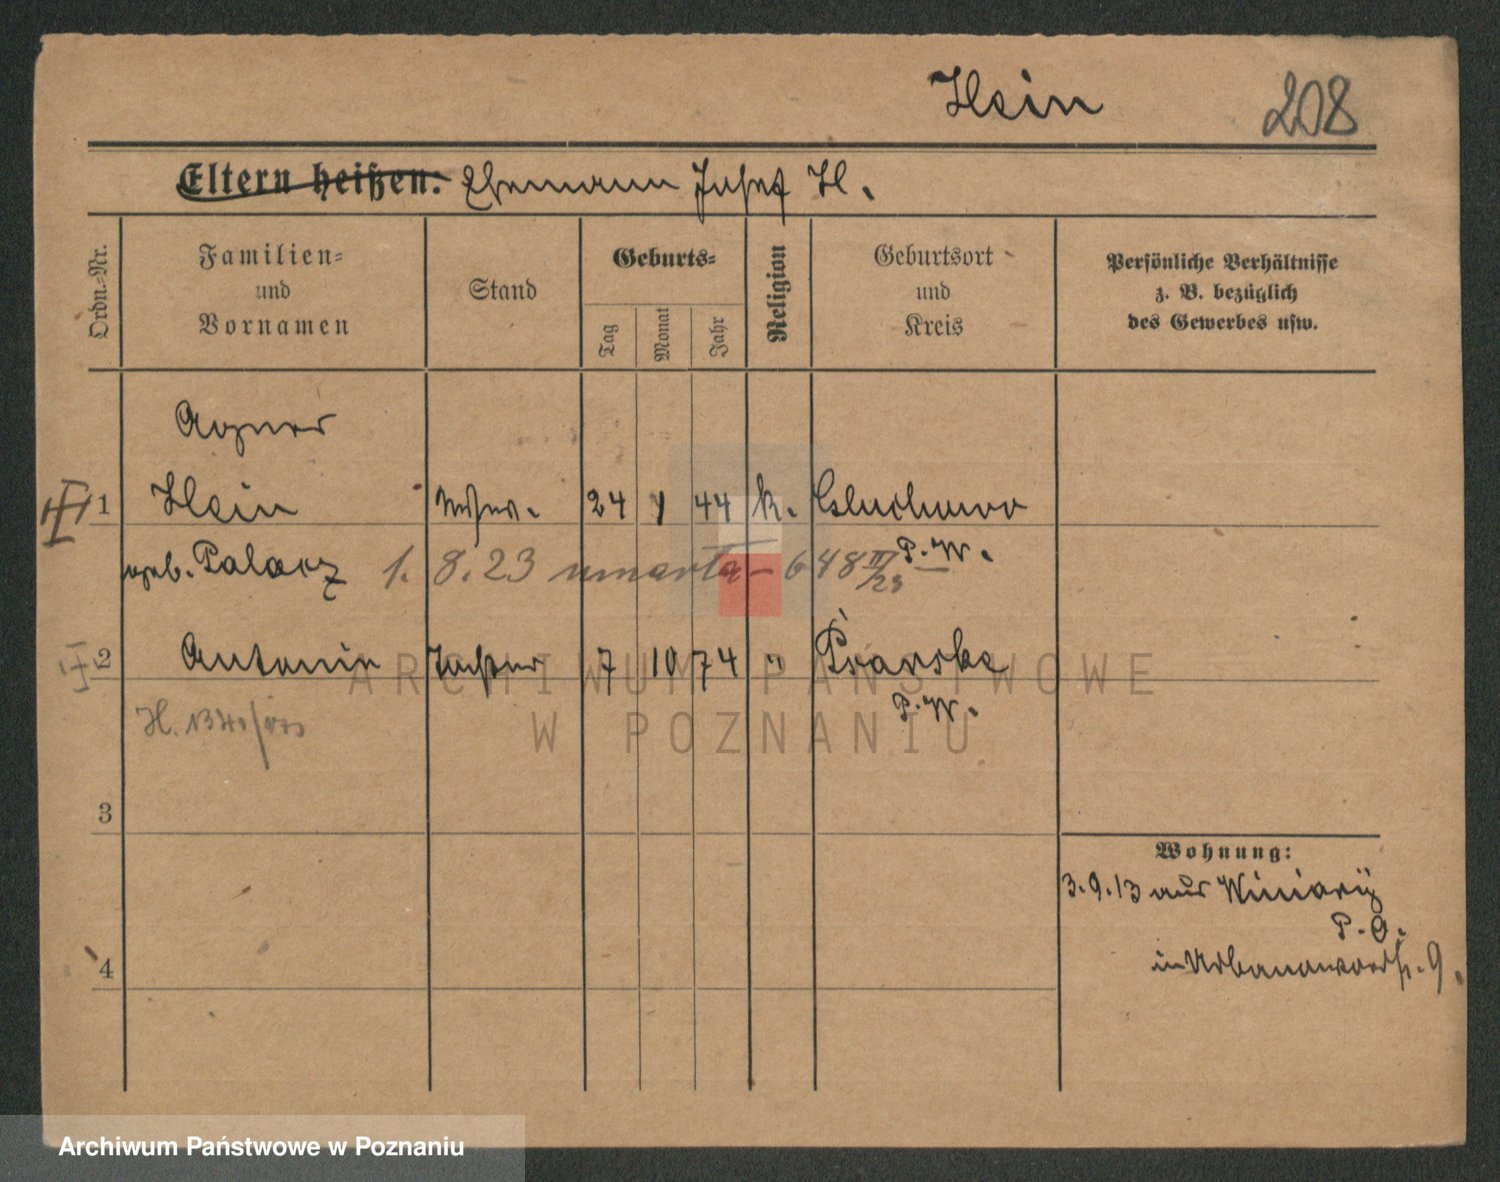 Hein 208
Eltern heißen: Ehemann Josef H.
Ordn.-Nr.
Familien-
und
Vornamen
Stand
Geburts-
Tag
Monat
Jahr
Religion
Geburtsort
und
Kreis
Persönliche Verhältnisse
z. B. bezüglich
des Gewerbes usw.
Agnes
1 Hein 24 1 44 k. Gluchowo
P. W.
geb. Palacz 1. 8. 23 umarła – 648 III/23
2 Antonie Tochter 7 10 74 "
P. W.
H.
3
4
Wohnung:
3.9.13 aus Winiary
P. O.
in Urbanowostr. 9.
ARCHIWUM PAŃSTWOWE
W POZNANIU
Archiwum Państwowe w Poznaniu